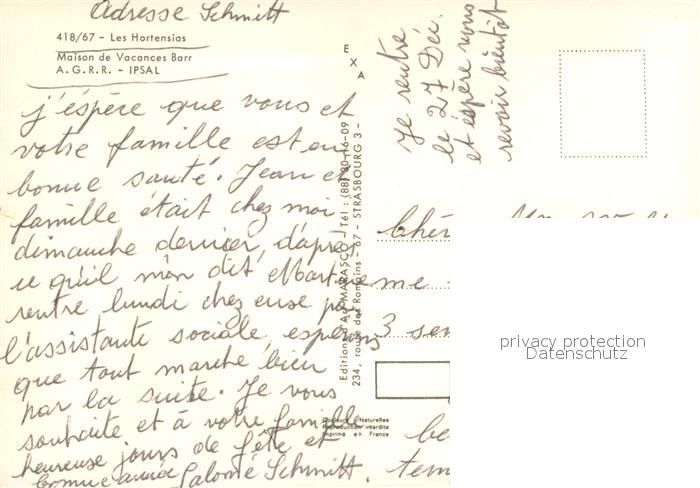 Adresse Schmitt
418/67 - Les Hortensias
Maison de Vacances Barr
A.G.R.R. - IPSAL
j'éspère que vous et
votre famille est en
bonne santé. Jean et
famille était chez moi
dimanche dernier, d'après
ce qu'il m'on dit Martine
rentre lundi chez euse par
l'assistante sociale, espérons
que tout marche bien
par la suite. Je vous
souhaite et à votre famille
heureuse jours de fête et
bonne année Salomé Schmitt.
EXA
Editions d'Art MARASCO - Tél : (88) 30-16-09
234, route des Romains - 67 - STRASBOURG 3 -
Couleurs Naturelles
Reproduction interdite
Imprimé en France
Je rentre
le 27 Déc.
et éspère vous
revoir bientôt
Chèr
me
3 sem
be
tem
privacy protection
Datenschutz